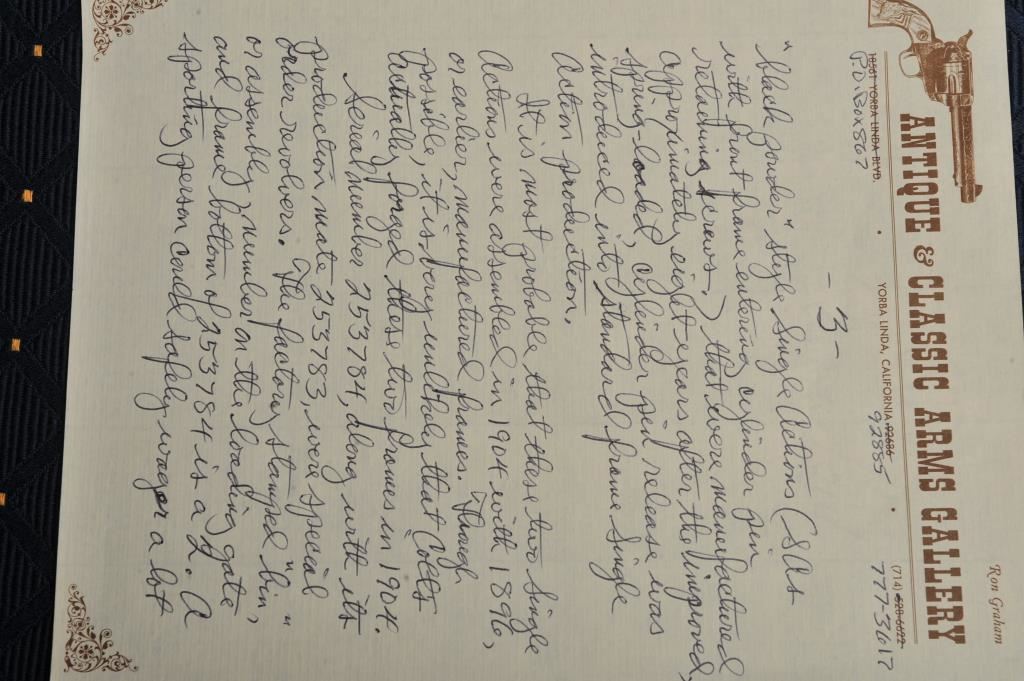 Ron Graham
ANTIQUE & CLASSIC ARMS GALLERY
18561 YORBA LINDA BLVD. • YORBA LINDA, CALIFORNIA 92686 • (714) 528-6622
P.O. Box 867 92885 777-3617
- 3 -
"black powder" style Single Actions (SAs
with front frame entering cylinder pin
retaining screws.) that were manufactured
approximately eight years after the improved,
spring-loaded, cylinder pin release was
introduced into standard frame Single
Action production.
It is most probable that these two Single
Actions were assembled in 1904 with 1896,
or earlier, manufactured frames. Though
possible, it is very unlikely that Colts
actually forged these two frames in 1904.
Serial number 253784, along with its
production mate 253783, were special
order revolvers. The factory stamped "bin,"
or assembly, number on the loading gate
and frame bottom of 253784 is a 2. A
sporting person could safely wager a lot